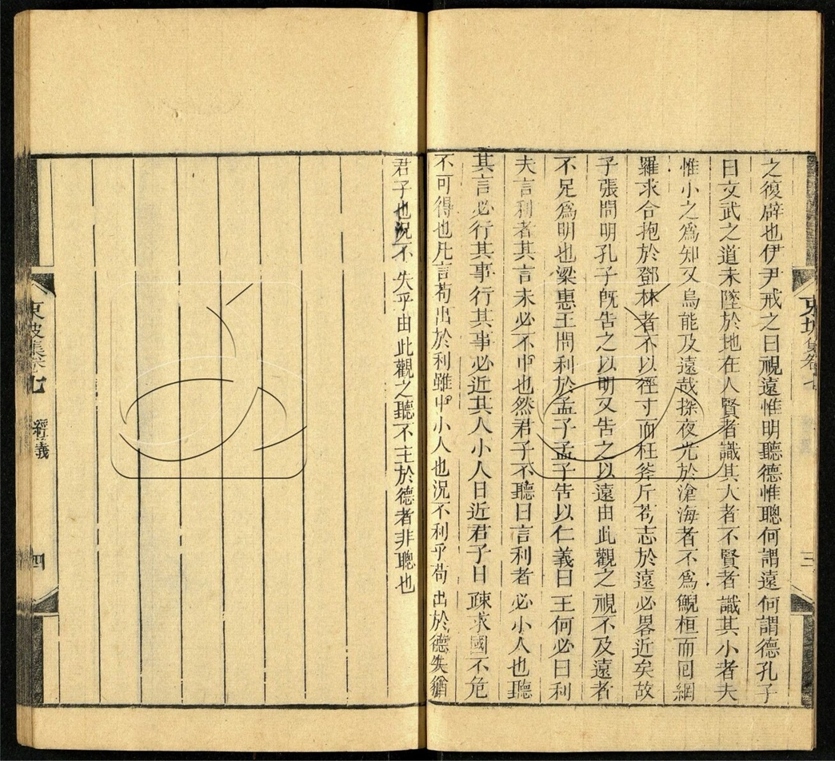 之復辟也伊尹戒之曰視遠惟明聽德惟聰何謂遠何謂德孔子
曰文武之道未墜於地在人賢者識其大者不賢者識其小者夫
惟小之爲知又烏能及遠哉探夜光於滄海者不爲鯢桓而回網
羅求合抱於鄧林者不以徑寸而枉斧斤苟志於遠必畧近矣故
子張問明孔子旣告之以明又告之以遠由此觀之視不及遠者
不足爲明也梁惠王問利於孟子孟子告以仁義曰王何必曰利
夫言利者其言未必不中也然君子不聽曰言利者必小人也聽
其言必行其事行其事必近其人小人日近君子日疎求國不危
不可得也凡言苟出於利雖中小人也況不利乎苟出於德失猶
君子也況不失乎由此觀之聽不主於德者非聰也
東坡集卷七
三
東坡集卷七
經義
四